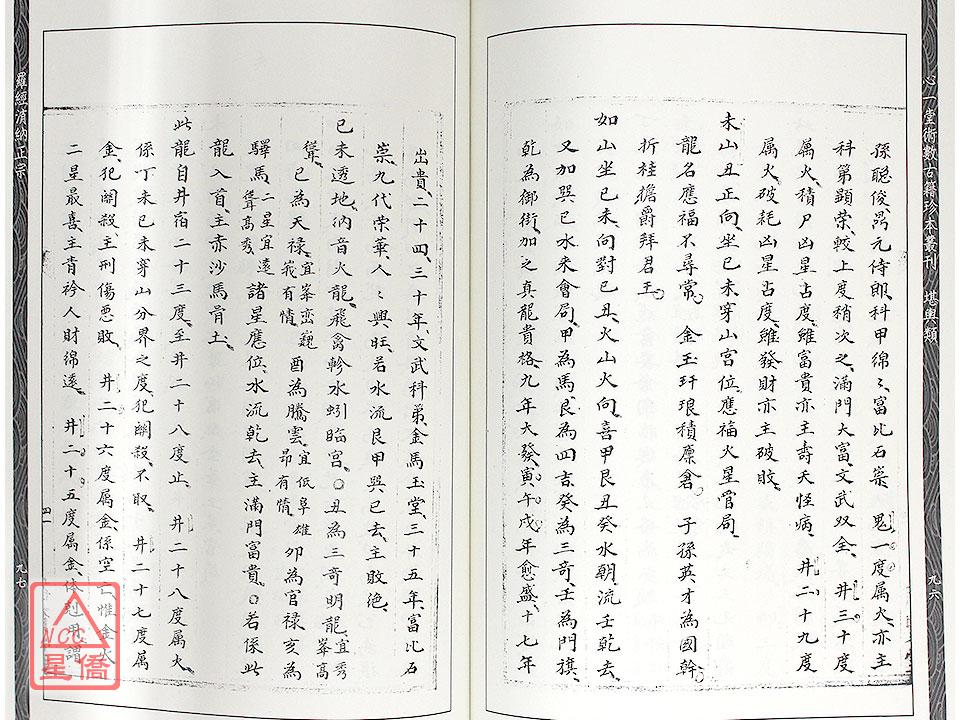 心一堂術數古籍珍本叢刊 堪輿類
九六
孫聰俊、昂元侍郎、科甲綿〻、富比石崇 鬼一度属火、亦主
科第顯榮、較上度稍次之、滿門大富、文武双全、 井三十度
属火、積尸凶星占度、雖富貴亦主壽夭怪病、 井二十九度
属火、破耗凶星占度、雖發財亦主破敗、
未山丑正向、坐已未穿山宮位、應福火星官局、
龍名應福不尋常、 金玉玕琅積廩倉。 子孫英才為國幹、
折桂擔爵拜君王。
如山坐已未、向對已丑、火山火向、喜甲艮丑癸水朝、流壬乾去、
又加巽巳水来會局、甲為馬、艮為四吉、癸為三奇、壬為門旗、
乾為御街、加之真龍貴格、九年大發、寅午戌年愈盛、十七年
出貴、二十四、三十年、文武科第、金馬玉堂、三十五年、富比石
崇、九代榮華、人〻興旺、若水流艮甲巽巳去、主敗絶、
已未透地、納音火龍、飛禽軫水蚓臨宮。○丑為三奇明龍、宜秀峯高
聳、 巳為天禄、宜峯巒巍峩有情、 酉為騰雲、宜低阜雄昻有情、 卯為官禄、亥為
驛馬、二星宜遠聳高秀、 諸星應位、水流乾去、主滿門富貴。○若係此
龍入首、主赤沙馬骨土、
此龍自井宿二十三度、至井二十八度止、 井二十八度属火、
係丁未已未穿山分界之度、犯關殺、不取、 井二十七度属
金、犯關殺、主刑傷惡敗、 井二十六度属金、係空亡、惟金水
二星最喜、主青衿人財綿遠、 井二十五度属金、
羅經消納正宗
九七
NCC
星僑